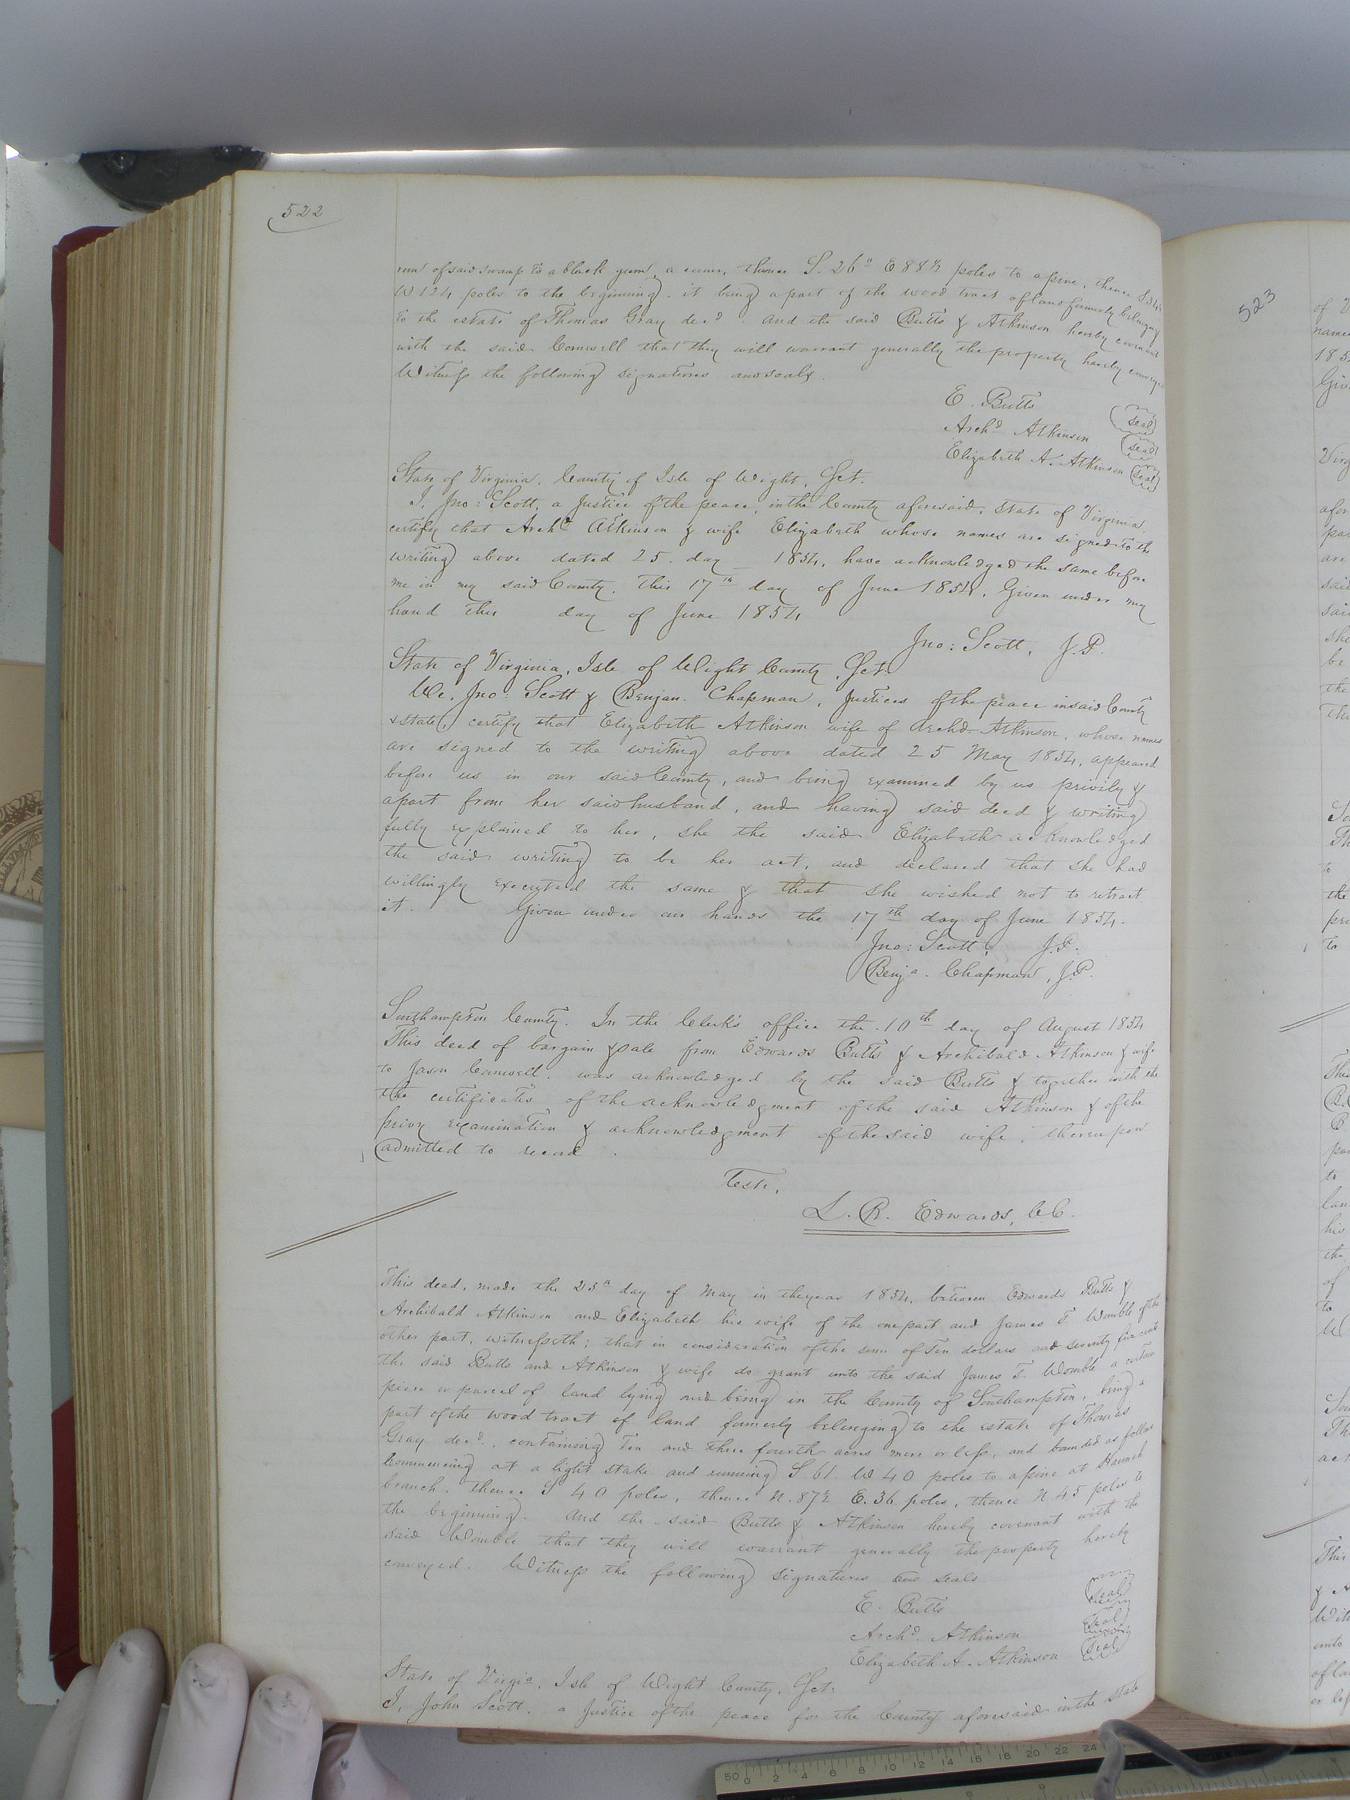 522
run of said swamp to a black gum, a corner, thence S. 26° E 88½ poles to a pine, thence S. 34
W 124 poles to the beginning. it being a part of the wood tract of land formerly belonging
to the estate of Thomas Gray decd. And the said Butts & Atkinson hereby covenant
with the said Cornwell that they will warrant generally the property hereby conveyed
Witness the following signatures and seals.
E. Butts (seal)
Archd Atkinson (seal)
Elizabeth A. Atkinson (seal)
State of Virginia. County of Isle of Wight, Sct.
I, Jno: Scott, a Justice of the peace, in the County aforesaid, State of Virginia
certify that Archd Atkinson & wife Elizabeth whose names are signed to the
writing above dated 25 day _ 1854, have acknowledged the same before
me in my said County, this 17th day of June 1854. Given under my
hand this day of June 1854
Jno: Scott, J.P.
State of Virginia, Isle of Wight County, Sct.
We, Jno: Scott & Benjan. Chapman, Justices of the peace in said County
& State, certify that Elizabeth Atkinson wife of Archd Atkinson, whose names
are signed to the writing above dated 25 May 1854, appeared
before us in our said County, and being examined by us privily &
apart from her said husband, and having said deed & writing
fully explained to her, she the said Elizabeth acknowledged
the said writing to be her act, and declared that she had
willingly executed the same & that she wished not to retract
it. Given under our hands the 17th day of June 1854.
Jno: Scott, J.P.
Benja. Chapman, J.P.
Southampton County. In the Clerk's office the 10th day of August 1854
This deed of bargain & sale from Edwards Butts & Archibald Atkinson & wife
to Jason Cornwell. was acknowledged by the said Butts & together with the
the certificates of the acknowledgment of the said Atkinson & of the
privy examination & acknowledgment of the said wife, thereupon
admitted to record.
Teste,
L. R. Edwards, C.C.
This deed, made the 25th day of May in the year 1854, between Edwards Butts &
Archibald Atkinson and Elizabeth his wife of the one part and James T. Womble of the
other part, witnesseth; that in consideration of the sum of Ten dollars and seventy five cents
the said Butts and Atkinson & wife do grant unto the said James T. Womble a certain
piece or parcel of land lying and being in the County of Southampton, being a
part of the wood tract of land formerly belonging to the estate of Thomas
Gray decd. containing Ten and three fourth acres more or less, and bounded as follows
Commencing at a light stake and running S 61 W 40 poles to a pine at Hannah
branch, thence S 40 poles, thence N. 87½ E. 36 poles, thence N 45 poles to
the beginning. And the said Butts & Atkinson hereby covenant with the
said Womble that they will warrant generally the property hereby
conveyed. Witness the following signatures and seals
E. Butts (seal)
Archd. Atkinson (seal)
Elizabeth A. Atkinson (seal)
State of Virgia, Isle of Wight County, Sct:
I, John Scott, a Justice of the peace for the County aforesaid in the State
523